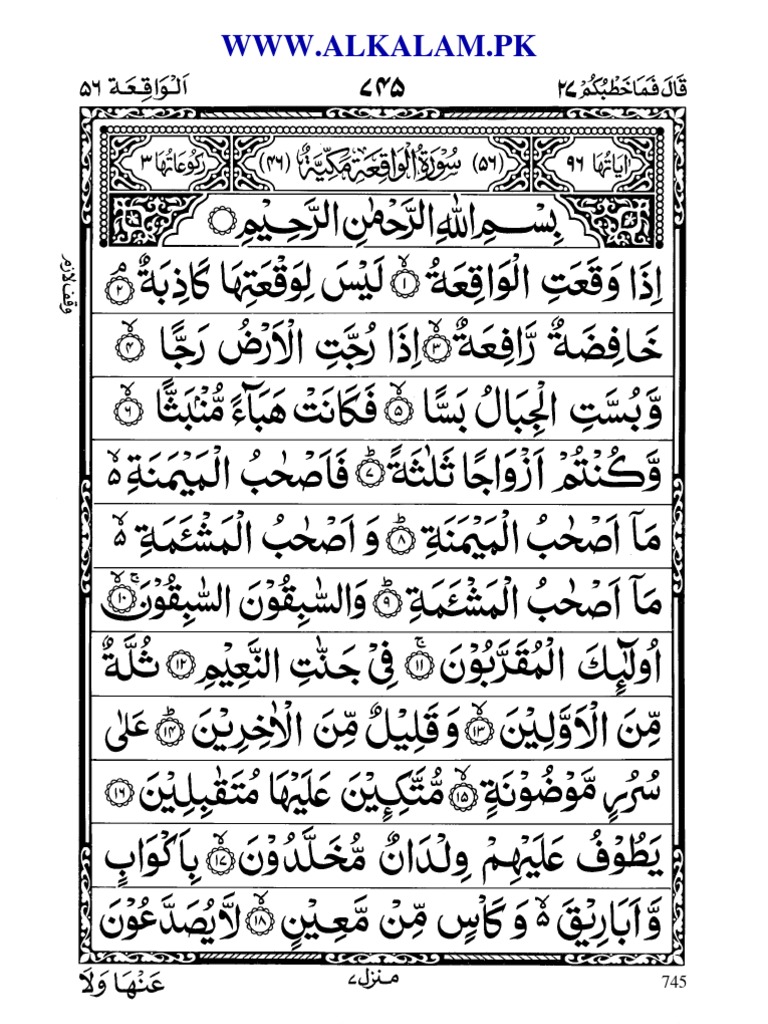 WWW.ALKALAM.PK
قَالَ فَمَا خَطْبُكُمْ ٢٧ ٧٤٥ اَلْوَاقِعَة ٥٦
اٰيَاتُهَا ٩٦ (٥٦) سُوْرَةُ الْوَاقِعَةِ مَكِّيَّةٌ (٤٦) رُكُوْعَاتُهَا ٣
بِسْمِ اللّٰهِ الرَّحْمٰنِ الرَّحِيْمِ
اِذَا وَقَعَتِ الْوَاقِعَةُ ۙ﴿١﴾ لَيْسَ لِوَقْعَتِهَا كَاذِبَةٌ ۘ﴿٢﴾
وقف لازم
خَافِضَةٌ رَّافِعَةٌ ۙ﴿٣﴾ اِذَا رُجَّتِ الْاَرْضُ رَجًّا ۙ﴿٤﴾
وَّ بُسَّتِ الْجِبَالُ بَسًّا ۙ﴿٥﴾ فَكَانَتْ هَبَآءً مُّنْۢبَثًّا ۙ﴿٦﴾
وَّ كُنْتُمْ اَزْوَاجًا ثَلٰثَةً ؕ﴿٧﴾ فَاَصْحٰبُ الْمَيْمَنَةِ ۙ۬
مَاۤ اَصْحٰبُ الْمَيْمَنَةِ ؕ﴿٨﴾ وَ اَصْحٰبُ الْمَشْـَٔمَةِ ۙ۬
مَاۤ اَصْحٰبُ الْمَشْـَٔمَةِ ؕ﴿٩﴾ وَالسّٰبِقُوْنَ السّٰبِقُوْنَ ۚۙ﴿١٠﴾
اُولٰٓئِكَ الْمُقَرَّبُوْنَ ۚ﴿١١﴾ فِيْ جَنّٰتِ النَّعِيْمِ ﴿١٢﴾ ثُلَّةٌ
مِّنَ الْاَوَّلِيْنَ ۙ﴿١٣﴾ وَ قَلِيْلٌ مِّنَ الْاٰخِرِيْنَ ؕ﴿١٤﴾ عَلٰى
سُرُرٍ مَّوْضُوْنَةٍ ۙ﴿١٥﴾ مُّتَّكِـِٕيْنَ عَلَيْهَا مُتَقٰبِلِيْنَ ﴿١٦﴾
يَطُوْفُ عَلَيْهِمْ وِلْدَانٌ مُّخَلَّدُوْنَ ۙ﴿١٧﴾ بِاَكْوَابٍ
وَّ اَبَارِيْقَ ۙ۬ وَ كَاْسٍ مِّنْ مَّعِيْنٍ ۙ﴿١٨﴾ لَّا يُصَدَّعُوْنَ
منزل ٧
عَنْهَا وَلَا
745